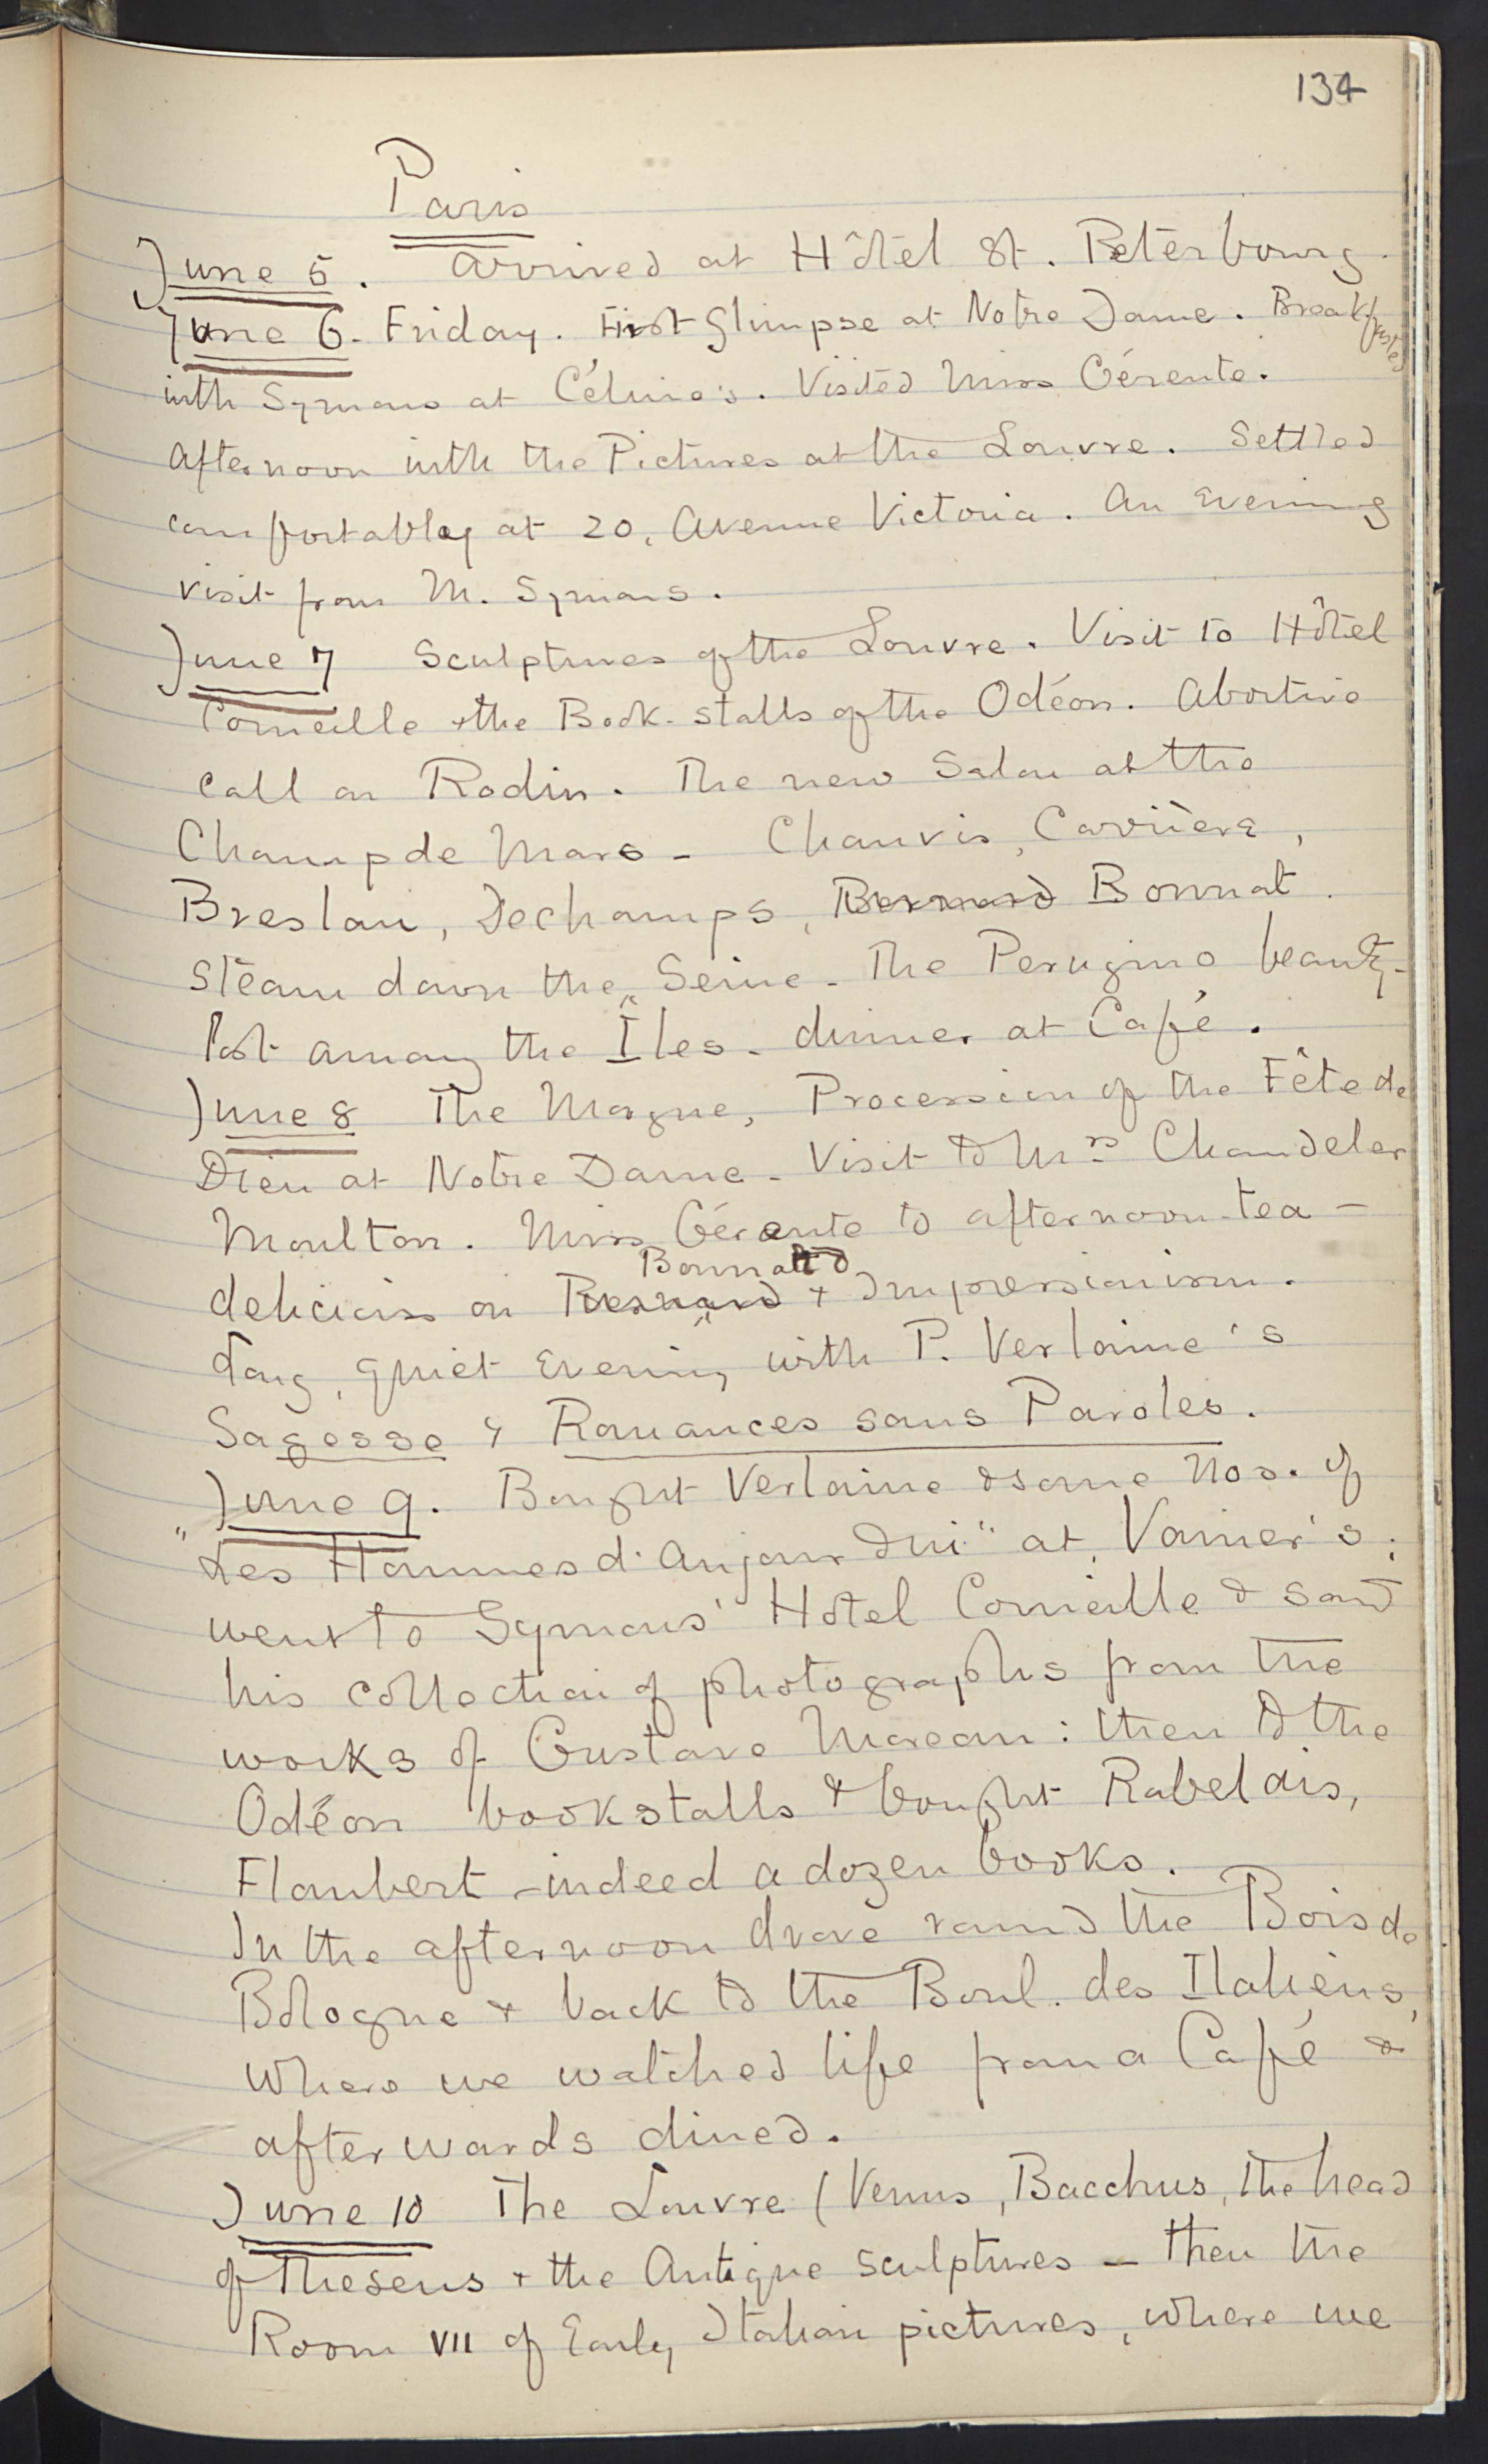 134
Paris
June 5. Arrived at Hôtel St. Petersbourg.
June 6. Friday. First Glimpse at Notre Dame. Breakfasted
with Symons at Céline's. Visited Miss Gérente.
Afternoon with the Pictures at the Louvre. Settled
comfortably at 20, Avenue Victoria. An Evening
visit from M. Symons.
June 7 Sculptures of the Louvre. Visit to Hôtel
Corneille & the Book-stalls of the Odéon. Abortive
call on Rodin. The new Salon at the
Champ de Mars – Chauvis, Carrière,
Breslau, Dechamps, Besnard Bonnat.
Steam down the Seine – The Perugino beauty –
lost among the Îles – dinner at Café.
June 8 The Morgue, Procession of the Fête de
Dieu at Notre Dame – Visit to Mrs Chandeler
Moulton. Miss Gérente to afternoon-tea –
delicious on Besnard Bonnat & Impressionism.
Long, quiet Evening with P. Verlaine's
Sagesse & Romances sans Paroles.
June 9. Bought Verlaine & some Nos. of
"Les Hommes d'Aujourdhui" at Vanier's;
went to Symons' Hotel Corneille & saw
his collection of photographs from the
works of Gustave Moreau: then to the
Odéon bookstalls & bought Rabelais,
Flaubert – indeed a dozen books.
In the afternoon drove round the Bois de
Bologne & back to the Boul. des Italiens,
where we watched life from a Café &
afterwards dined.
June 10 The Louvre (Venus, Bacchus, the head
of Theseus & the Antique sculptures – then the
Room VII of Early Italian pictures, where we